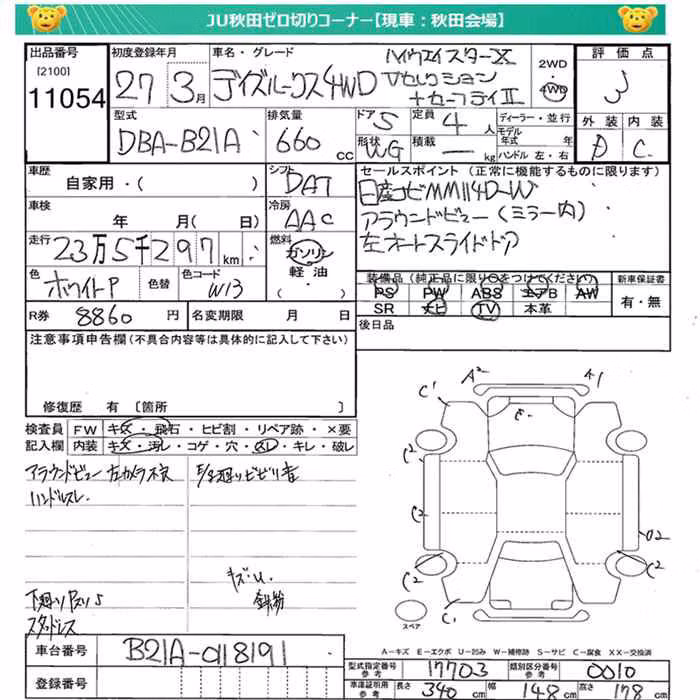 JU秋田ゼロ切りコーナー【現車：秋田会場】
出品番号
[2100]
11054
初度登録年月
27年3月
車名・グレード
デイズルークス4WD
ハイウェイスターX
Vセレクション
+セーフティII
2WD
4WD
評価点
3
外装 内装
D C
型式
DBA-B21A
排気量
660 cc
ドア 5
定員 4 人
形状 WG
積載 ー kg
ディーラー・並行
モデル年式 年
ハンドル 左・右
車歴
自家用・( )
シフト
DAT
車検
年 月( 日)
冷房
AAC
走行
23万5千297 km
燃料
ガソリン
軽油
( )
色
ホワイトP
色替
色コード
W13
R券 8860 円
名変期限 月 日
セールスポイント (正常に機能するものに限ります)
日産ナビMM114D-W
アラウンドビュー(ミラー内)
左オートスライドドア
装備品(純正品に限り○をつけてください)
PS PW ABS エアB AW
SR ナビ TV 本革
新車保証書
有・無
後日品
注意事項申告欄(不具合内容等は具体的に記入して下さい)
修復歴 有 [箇所 ]
検査員記入欄
FW キズ・飛石・ヒビ割・リペア跡・×要
内装 キズ・汚レ・コゲ・穴・スレ・キレ・破レ
アラウンドビュー左カメラ不良
ハンドルスレ
下廻りサビ5
スタッドレス
キズ・U
鉄粉
C' A2 A1
E
C2
C2
C2
C1
U2
C2
スペア
A－キズ E－エクボ U－凹み W－補修跡 S－サビ C－腐食 XX－交換済
車台番号
B21A-0118191
登録番号
型式指定番号 参考
17703
類別区分番号 参考
0010
車庫証明用 参考
長さ 340 cm
幅 148 cm
高さ 178 cm